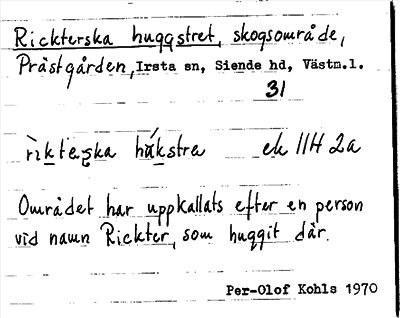 Rickterska huggstret, skogsområde,
Prästgården, Irsta sn, Siende hd, Västm.l.
31
rìkteska hákstra ek 11H 2a
Området har uppkallats efter en person
vid namn Rickter, som huggit där.
Per-Olof Kohls 1970